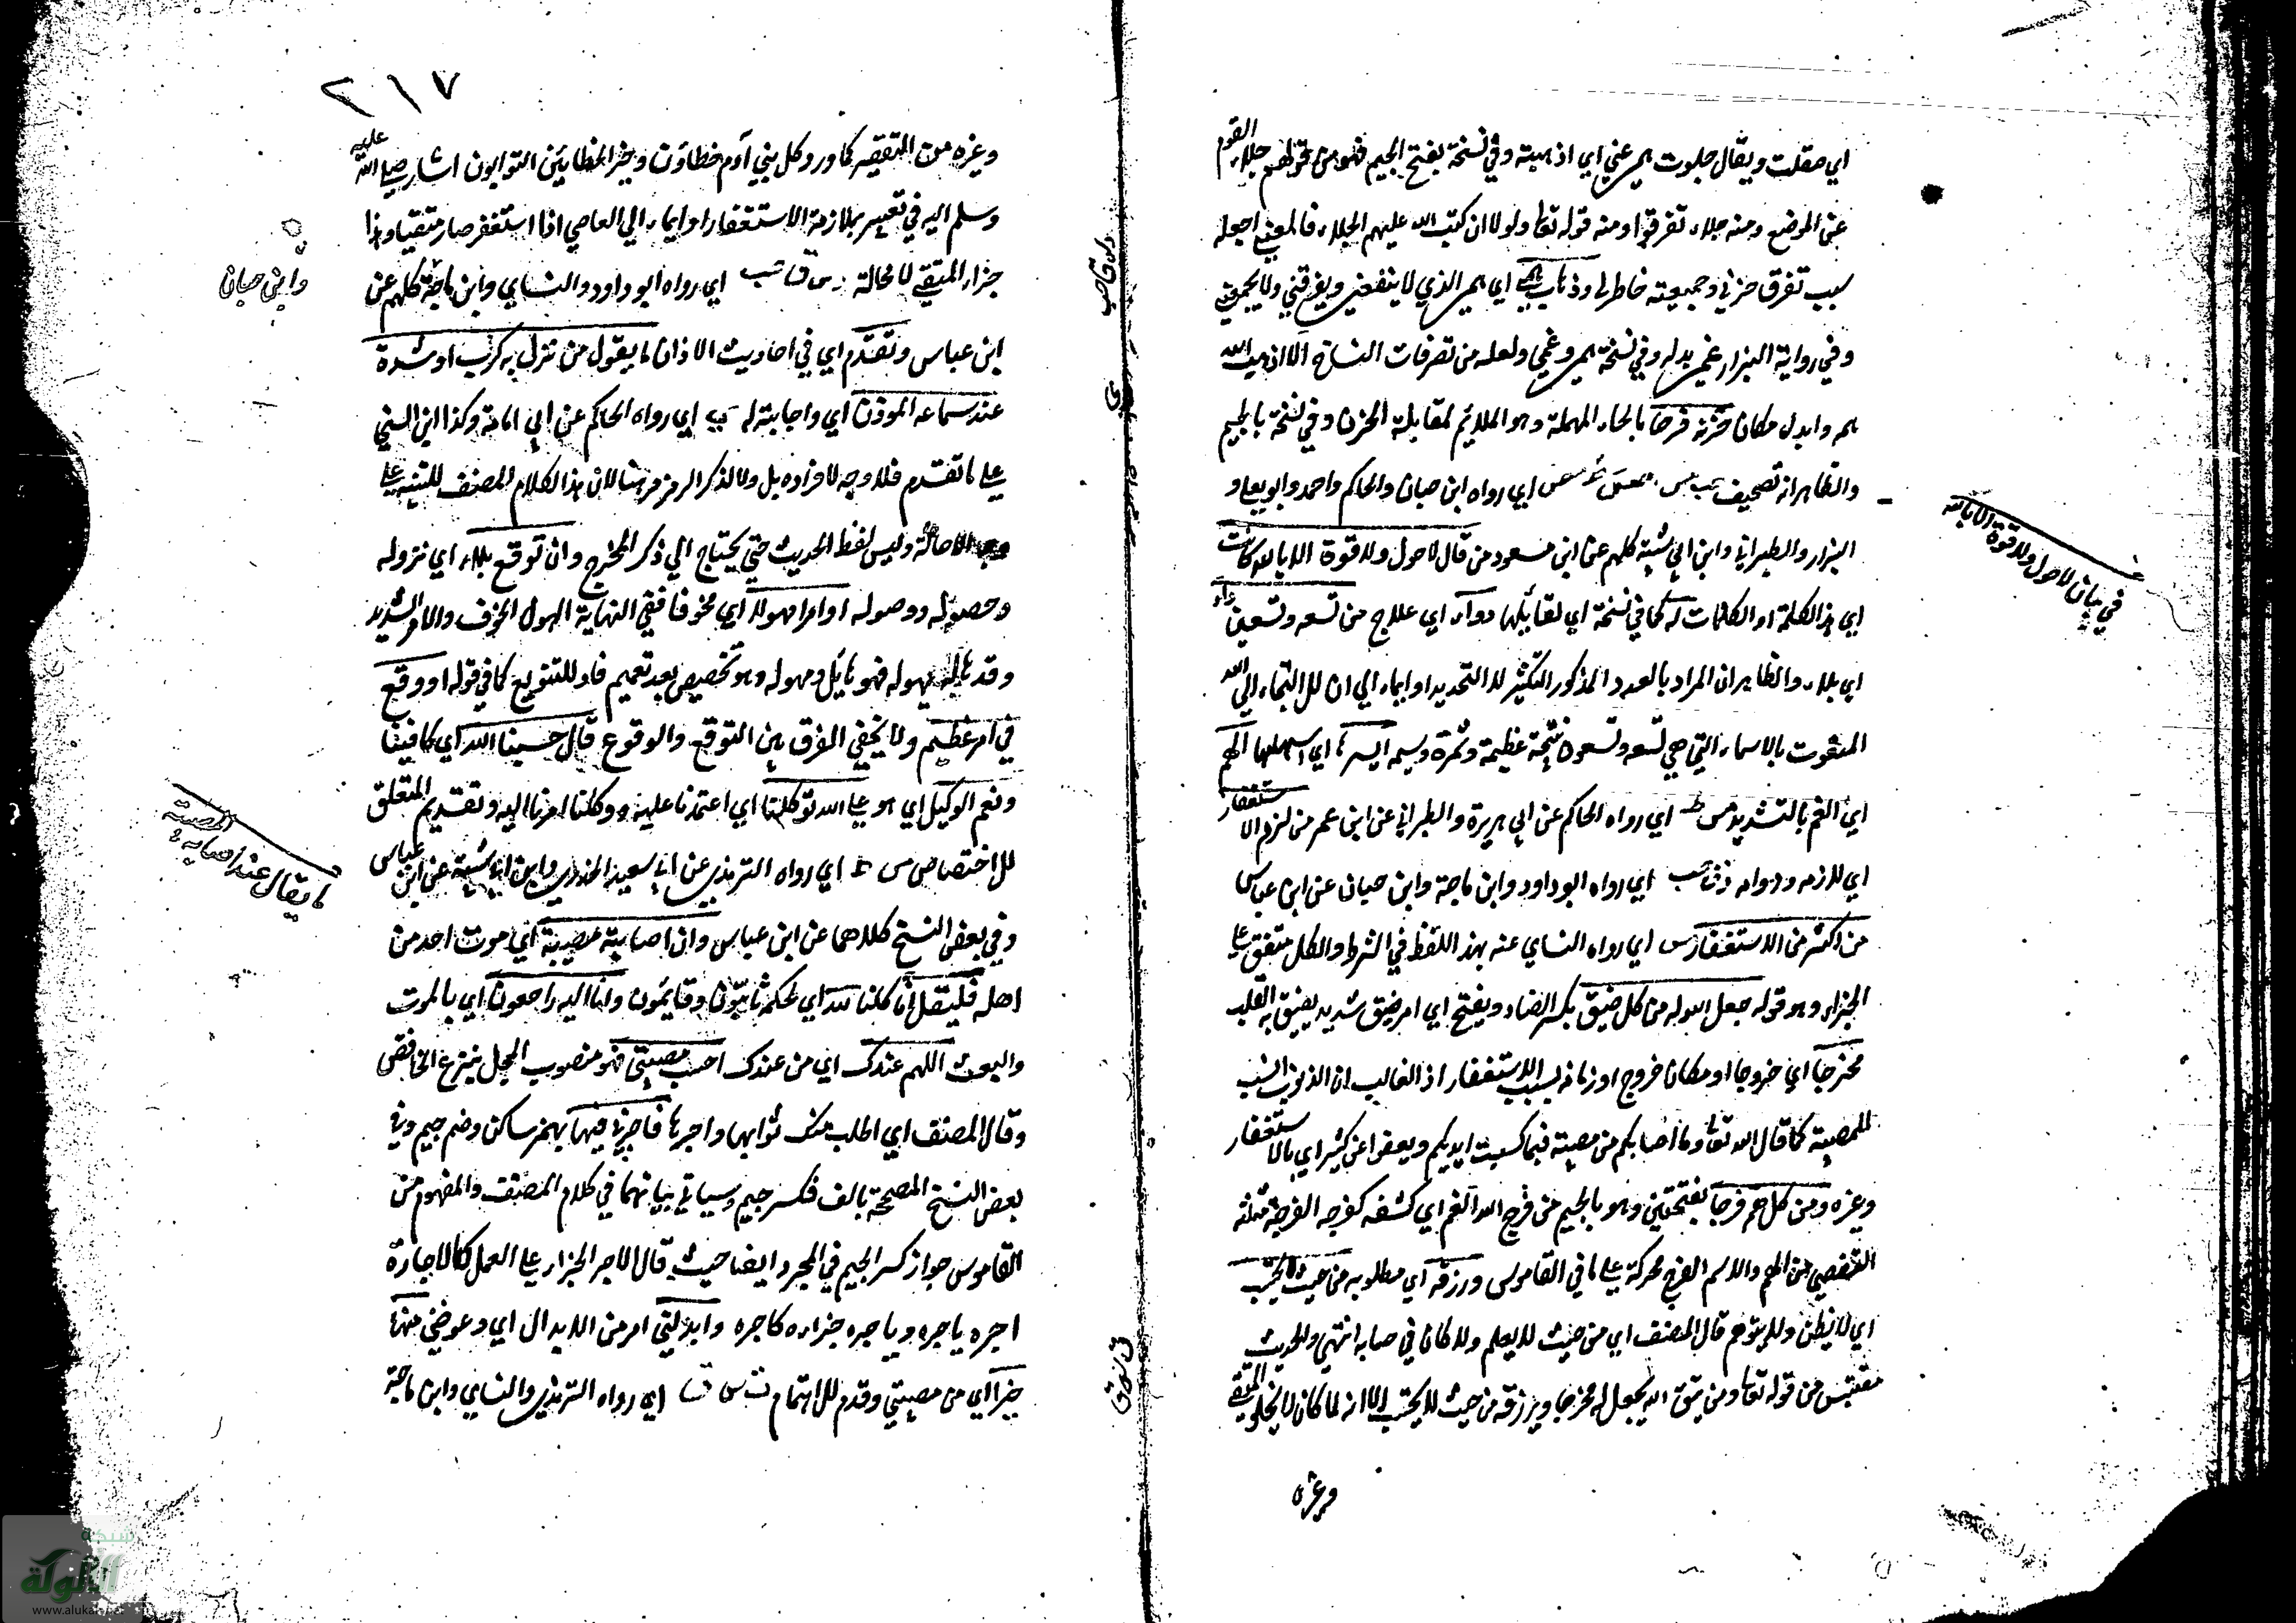 اي صقلت ويقال جلوت همي عني اي اذهبته وفي نسخة بفتح الجيم فهو من قولهم جلاء القوم
عن الموضع ومنه جلاء تفرقوا ومنه قوله تعا ولولا ان كتب الله عليهم الجلاء فالمعني اجعله
سبب تفرق حزني وجمعيته خاطري وذهاب همي اي همي الذي لا ينفعني ويفرقني ولا يجمعني
وفي رواية البزار غمي بدله وفي نسخة همي وغمي ولعله من تصرفات النساخ الا اذهب الله
همه وابدل مكان حزنه فرحا بالحاء المهملة وهو الملائم لمقابلة الحزن وفي نسخة بالجيم
والظاهر انه تصحيف حب مس اي رواه ابن حبان والحاكم واحمد وابو يعلي و
البزار والطبراني وابن ابي شيبة كلهم عن ابن مسعود من قال لا حول ولا قوة الا بالله كانت
اي هذ الكلمة او الكلمات له كما في نسخة اي لقائلها دواء اي علاج من تسعه وتسعين داء
اي بلاء والظاهر ان المراد بالعدد المذكور التكثير لا التحديد او ايماء الي ان للالتجاء الي الله
المنعوت بالاسماء التي هي تسعه وتسعون نتيجة عظيمة وثمرة وسيمه ايسرها اي اسهلها الهم
اي الغم بالتشديد مس ط اي رواه الحاكم عن ابي هريرة والطبراني عن ابن عمر من لزم الاستغفار
اي لازمه وداومه د ق حب اي رواه ابو داود وابن ماجة وابن حبان عن ابن عباس
من اكثر من الاستغفار س اي رواه النساي عنه بهذ اللفظ في الشرط والكل متفق علي
الجزاء وهو قوله جعل الله له من كل ضيق بكسر الضاد ويفتح اي امر ضيق شديد يضيق به القلب
مخرجا اي خروجا او مكان خروج او زمانه بسبب الاستغفار اذ الغالب ان الذنوب السبب
للمصيبة كما قال الله تعا وما اصابكم من مصيبة فبما كسبت ايديكم ويعفوا عن كثير اي بالاستغفار
وغيره ومن كل هم فرجا بفتحتين وهو بالجيم من فرج الله الغم اي كشفه كفرجه الفرجة مثلثة
التفصي من الهم والاسم الفرج محركة علي ما في القاموس ورزقه اي مطلوبه من حيث لا يحتسب
اي لا يظن ولا يتوهم قال المصنف اي من حيث لا يعلم ولا كان في حسابه انتهي والحديث
مقتبس من قوله تعا ومن يتق الله يجعل له مخرجا ويرزقه من حيث لا يحتسب الا انه لما كان لا يخلو المتقي
وغيره
في بيان لا حول ولا قوة الا بالله
٢١٧
وغيره من التقصير كما ورد كل بني آدم خطاؤن وخير الخطائين التوابون اشار صلي الله عليه
وسلم اليه في تعبيره بملازمة الاستغفار او ايماء الي العاصي اذا استغفر صار متقيا وهذا
جزاء المتقي لا محالة د س ق حب اي رواه ابو داود والنساي وابن ماجة كلهم عن
وابن حبان
ابن عباس وتقدم اي في احاديث الاذان ما يقول من نزل به كرب او شدة
عند سماعه الموذن اي واجابته له مس اي رواه الحاكم عن ابي امامة وكذا ابن السني
علي ما تقدم فلا وجه لافراده بل ولا لذكر الرمز هنا لان هذا الكلام للمصنف للتنبيه علي
الاحالة وليس لفظ الحديث حتي يحتاج الي ذكر المخرج وان توقع بلاء اي نزوله
وحصوله ووصوله او امرا مهولا اي مخوفا ففي النهاية الهول الخوف والامر الشديد
وقد هاله يهوله فهو هائل ومهول وهو تخصيص بعد تعميم فاو للتنويع كما في قوله او وقع
في امر عظيم ولا يخفي الفرق بين التوقع والوقوع قال حسبنا الله اي كافينا
ونعم الوكيل اي هو علي الله توكلنا اي اعتمدنا عليه ووكلنا امرنا اليه وتقديم المتعلق
للاختصاص مس اي رواه الترمذي عن ابي سعيد الخدري وابن ابي شيبة عن ابن عباس
وفي بعض النسخ كلاهما عن ابن عباس وان اصابته مصيبة اي موت احد من
ما يقال عند اصابة المصيبة
اهله فليقل انا كلنا لله اي لحكمه ثابتون وقايمون وانا اليه راجعون اي بالموت
والبعث اللهم عندك اي من عندك احتسب مصيبتي فهو منصوب المحل بنزع الخافض
وقال المصنف اي اطلب منك ثوابها واجرها فاجرني فيها بهمز ساكن وضم جيم وفي
بعض النسخ المصححة بالف فكسر جيم وسياتي بيانهما في كلام المصنف والمفهوم من
القاموس جواز كسر الجيم في المجرد ايضا حيث قال الاجر الجزاء علي العمل كالاجارة
اجره ياجره وياجره جزاءه كآجره وابدلني امر من الابدال اي وعوضني منها
خيرا اي من مصيبتي وقدم للاهتمام ت س ق اي رواه الترمذي والنساي وابن ماجة
شبكة
الألوكة
www.alukah.net